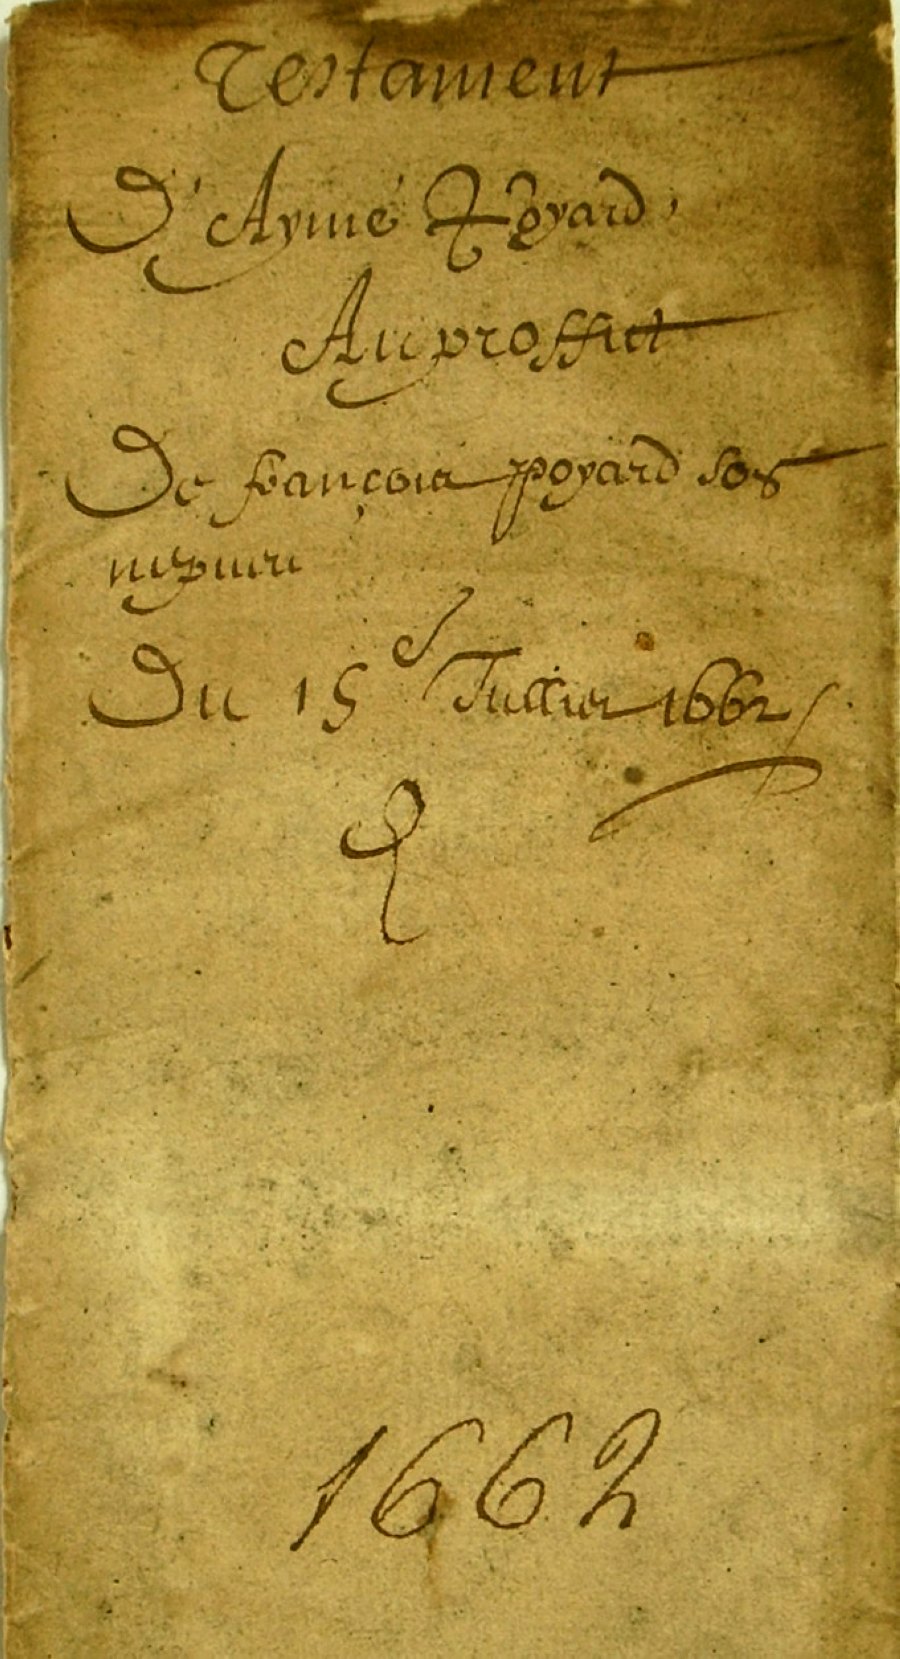 Testament
D'Aymé Poyard,
Au proffict
De françois poyard son
nepveu
Du 15e Julliet 1662
1662